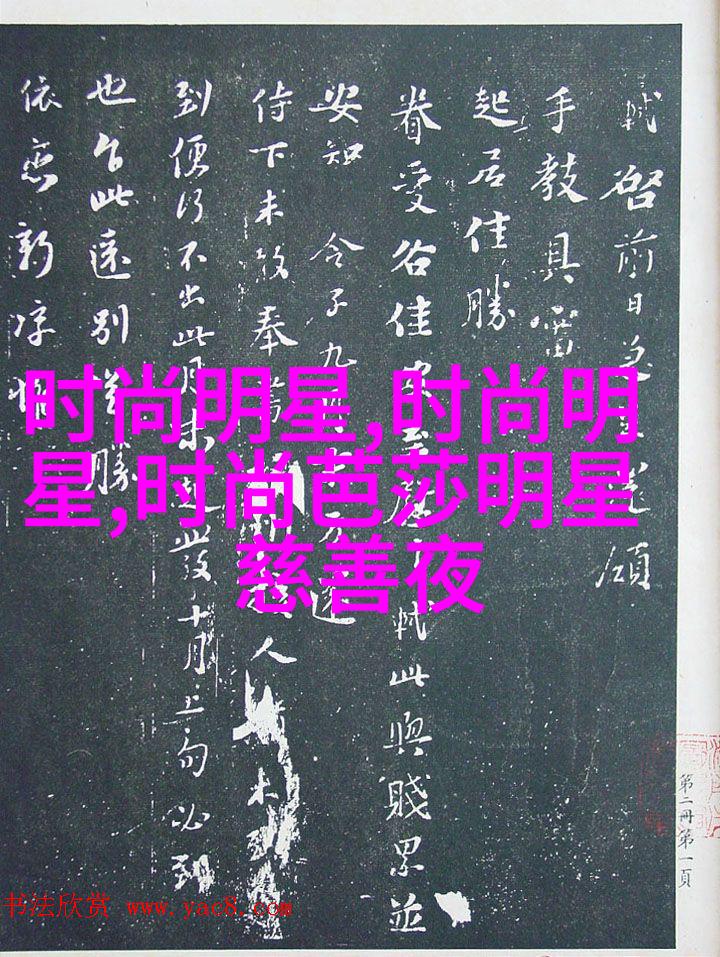 軾啓前日領
手教具審
起居佳勝
眷愛各佳軾此與賤累並
安知 令子九
侍下未敢奉書人
到便行不出此月末起此及十月上旬必到
也乍此遠別勝
依戀新凉惟
时尚明星,时尚明
星,时尚芭莎明星
慈善夜
第二冊第一頁
书法欣赏 www.yac8.com